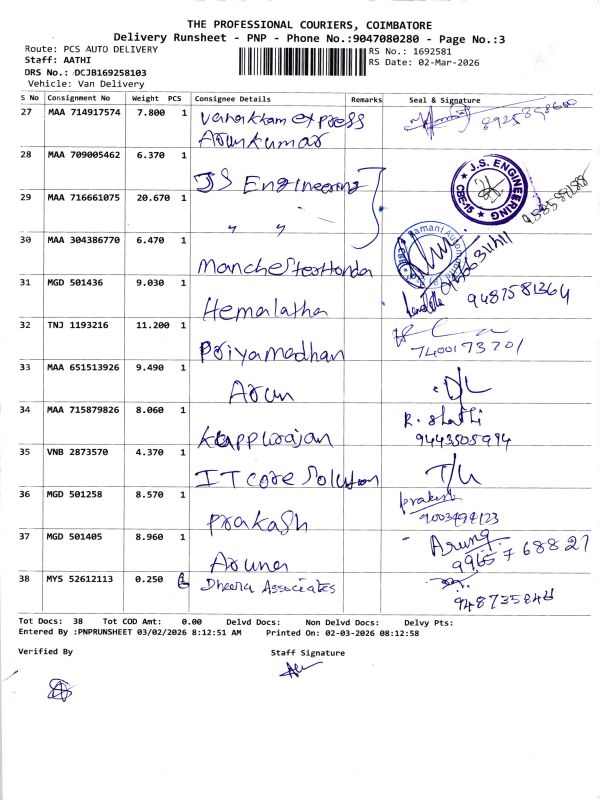 THE PROFESSIONAL COURIERS, COIMBATORE
Delivery Runsheet - PNP - Phone No.:9047080280 - Page No.:3
Route: PCS AUTO DELIVERY
RS No.: 1692581
Staff: AATHI
RS Date: 02-Mar-2026
DRS No.: DCJB169258103
Vehicle: Van Delivery
S No Consignment No Weight PCS Consignee Details Remarks Seal & Signature
27 MAA 714917574 7.800 1 Vanakkam express
Arunkumar
28 MAA 709005462 6.370 1 JS Engineering
J.S. ENGINEERING
CBE-15
29 MAA 716661075 20.670 1 " "
30 MAA 304386770 6.470 1 Manchester Honda
31 MGD 501436 9.030 1 Hemalatha 9487581364
32 TNJ 1193216 11.200 1 Priyamadhan 7400173701
33 MAA 651513926 9.490 1 Arun
34 MAA 715879826 8.060 1 Kuppurajan R. Shathi
9443505994
35 VNB 2873570 4.370 1 IT core Solution
36 MGD 501258 8.570 1 Prakash Prakash
9003494123
37 MGD 501405 8.960 1 Aruna Aruna
9965768827
38 MYS 52612113 0.250 Dheera Associates
Tot Docs: 38 Tot COD Amt: 0.00 Delvd Docs: Non Delvd Docs: Delvy Pts:
Entered By :PNPRUNSHEET 03/02/2026 8:12:51 AM Printed On: 02-03-2026 08:12:58
Verified By Staff Signature